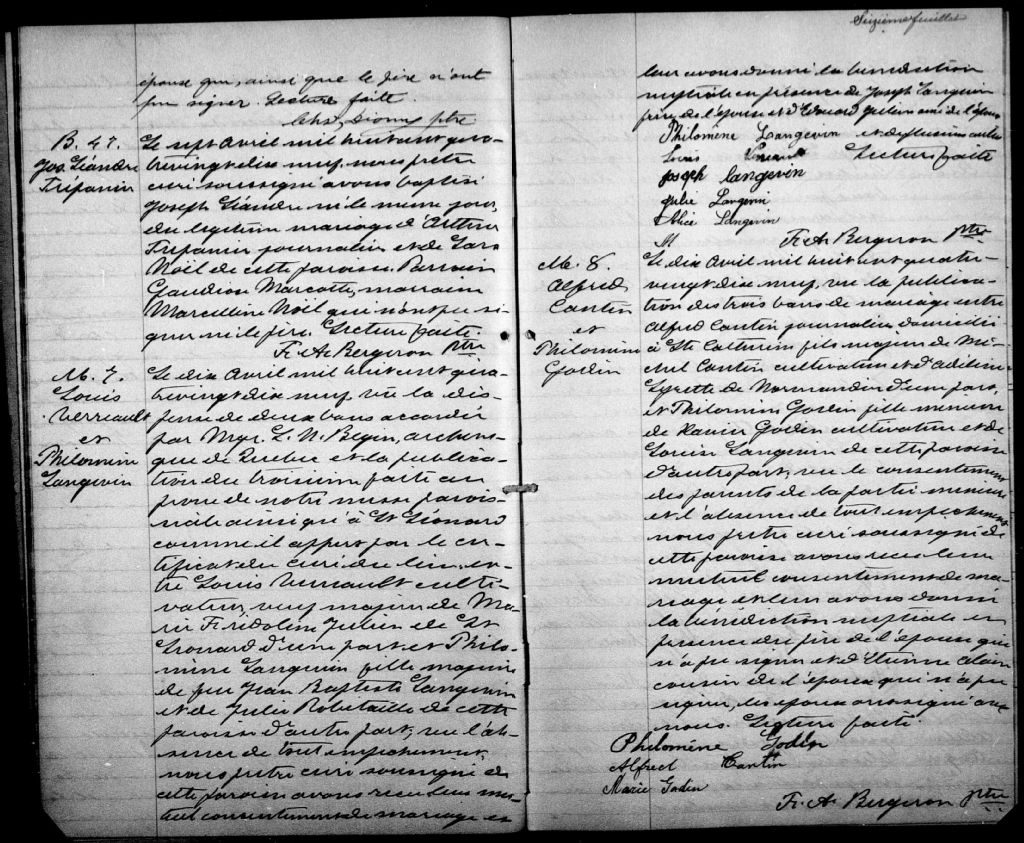 épouse qui, ainsi que le dire n'ont
pu signer. Lecture faite.
Chs Dionne ptre
B. 47.
Jos. Léandre
Trépanier
Le sept avril mil huit cent qua-
trevingt dix neuf, nous prêtre
curé soussigné avons baptisé
Joseph Léandre né le meme jour,
du légitime mariage d'Arthur
Trépanier journalier et de
Noël de cette paroisse. Parrain
Marcotte, marraine
Marcelline Noël qui n'ont pu si-
gner ni le père. Lecture faite.
Fr. A. Bergeron Ptre
M. 7.
Louis
Verreault
et
Philomène
Langevin
Le dix avril mil huit cent qua-
trevingt dix neuf, vu la dis-
pense de deux bans accordée
par Mgr. L. N. Bégin, archevê-
que de Québec et la publica-
tion du troisième faite au
prône de notre messe parois-
siale ainsi qu'à St Léonard
comme il appert par le cer-
tificat du curé du lieu, en-
tre Louis Verreault culti-
vateur, veuf majeur de Ma-
rie Fridoline Julien de St
Léonard d'une part et Philo-
mène Langevin fille majeure
de feu Jean Baptiste Langevin
et de Julie Robitaille de cette
paroisse d'autre part, vu l'ab-
sence de tout empêchement,
nous prêtre curé soussigné de
cette paroisse avons reçu leur mu-
tuel consentement de mariage et
Seizième feuillet
leur avons donné la bénédiction
nuptiale en présence de Joseph Langevin
frère de l'épouse et d'Edouard ami de l'époux
Philomène Langevin et de plusieurs autres
Louis Verreault Lecture faite
Joseph Langevin
Julie Langevin
Alice Langevin
M Fr. A. Bergeron ptre
M. 8.
Alfred
Cantin
et
Philomène
Godin
Le dix avril mil huit cent quatre
vingt dix neuf, vu la publica-
tion des trois bans de mariage entre
Alfred Cantin journalier domicilié
à Ste Catherine fils majeur de Mi-
chel Cantin cultivateur et d'Adeline
de Normandin d'une part,
et Philomène Godin fille mineure
de Xavier Godin cultivateur et de
Louise Langevin de cette paroisse
d'autre part, vu le consentement
des parents de la partie mineure
et l'absence de tout empêchement
nous prêtre curé soussigné de
cette paroisse avons reçu leur
mutuel consentement de ma-
riage et leur avons donné
la bénédiction nuptiale en
présence du père de l'époux qui
n'a pu signer et d'Etienne Alain
cousin de l'épouse qui n'a pu
signer, les époux ont signé avec
nous. Lecture faite.
Philomène Godin
Alfred Cantin
Marie Godin
Fr. A. Bergeron ptre